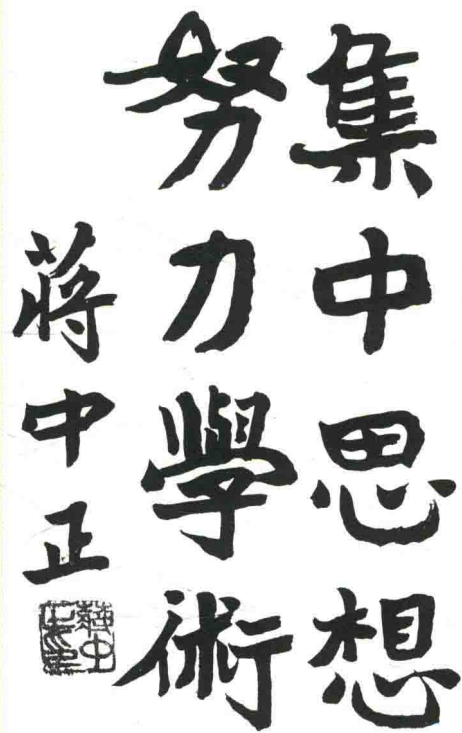 集中思想
努力學術
蔣中正